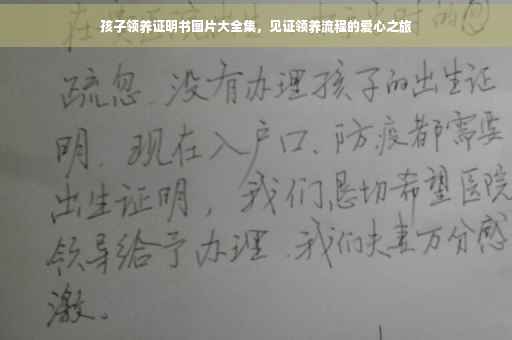 孩子领养证明书图片大全集，见证领养流程的爱心之旅
疏忽.没有办理孩子的出生证
明.现在入户口、防疫都需要
出生证明，我们恳切希望医院
领导给予办理.我们夫妻万分感
激。